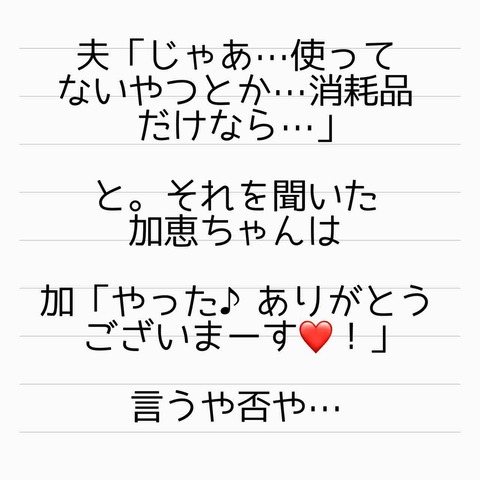 夫「じゃあ…使って
ないやつとか…消耗品
だけなら…」
と。それを聞いた
加恵ちゃんは
加「やった♪ ありがとう
ございまーす❤️！」
言うや否や…